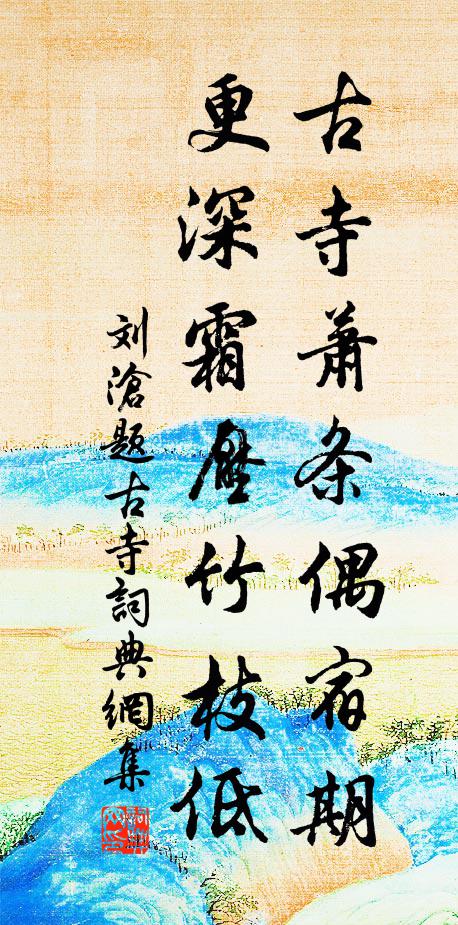 古寺萧条偶宿期
更深霜壓竹枝低
刘滄题古寺詞典網集